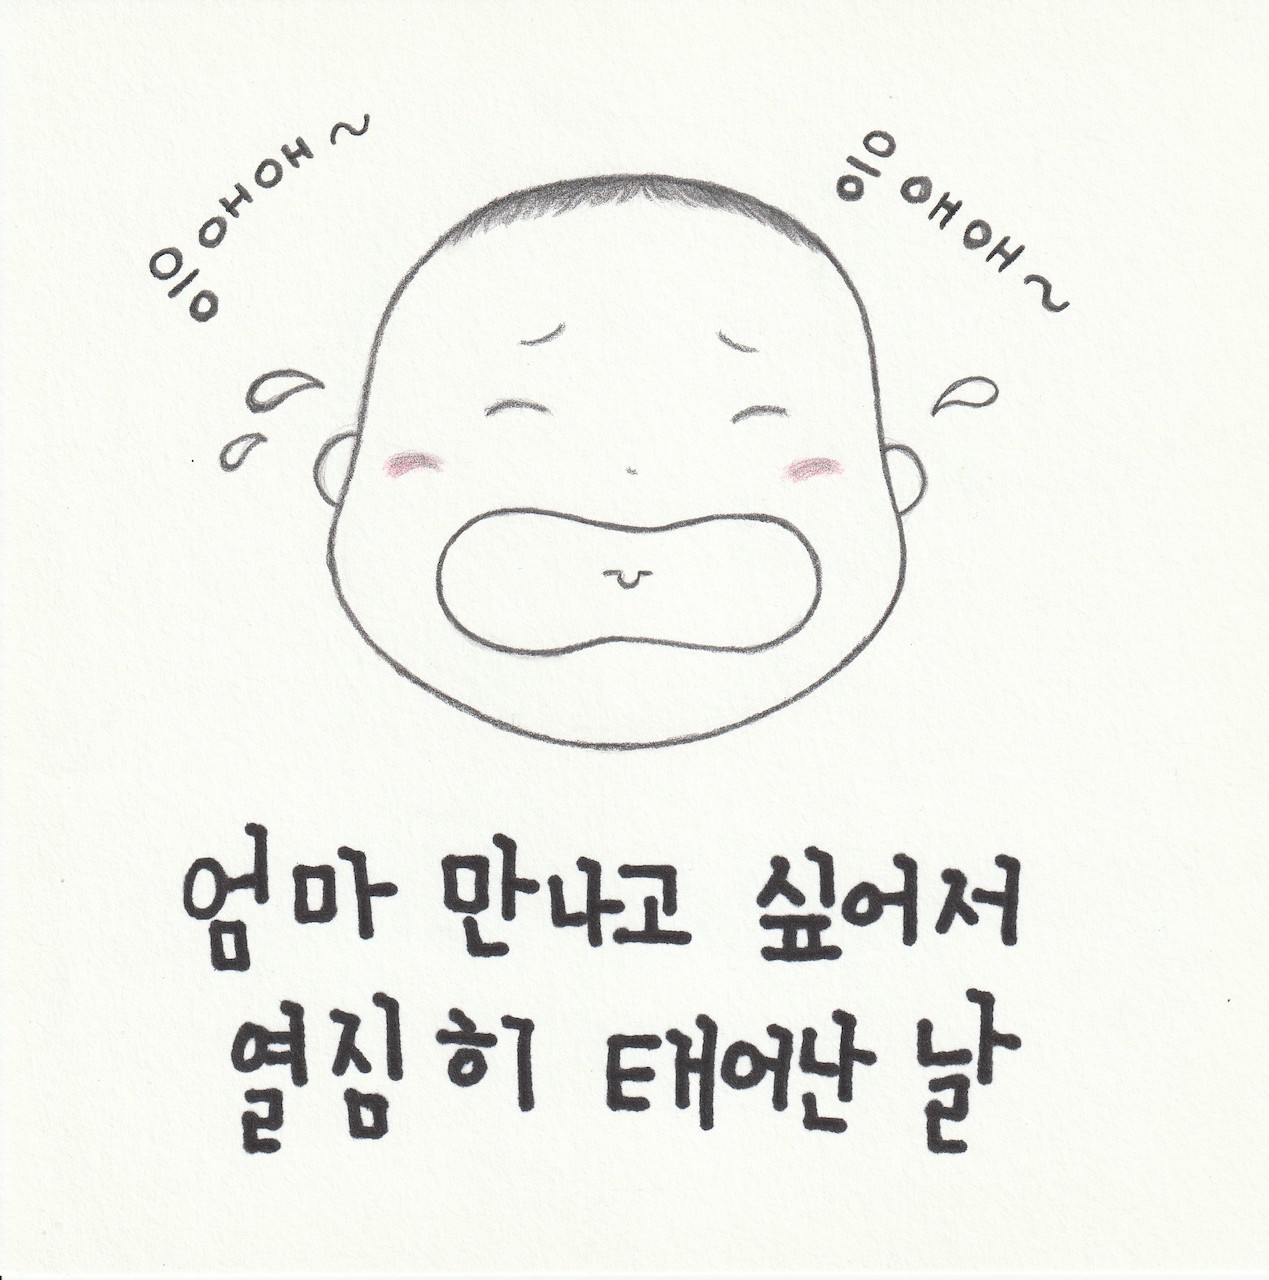 응애애~
응애애~
엄마 만나고 싶어저
열짐히 태어난 날